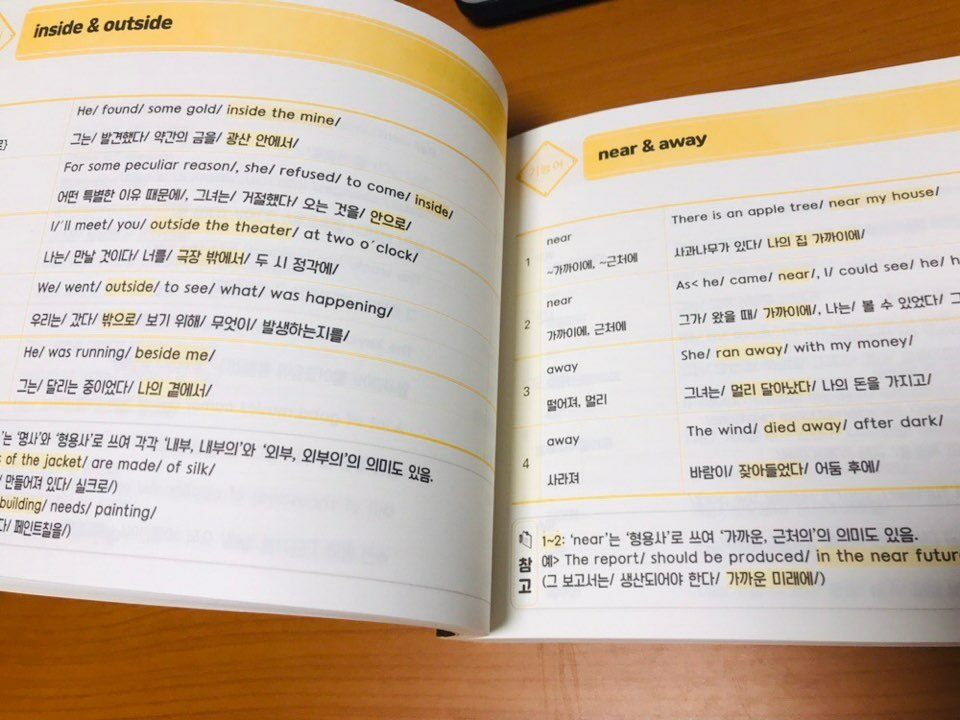 inside & outside
He/ found/ some gold/ inside the mine/
그는/ 발견했다/ 약간의 금을/ 광산 안에서/
For some peculiar reason/, she/ refused/ to come/ inside/
어떤 특별한 이유 때문에/, 그녀는/ 거절했다/ 오는 것을/ 안으로/
I/´ll meet/ you/ outside the theater/ at two o´clock/
나는/ 만날 것이다/ 너를/ 극장 밖에서/ 두 시 정각에/
We/ went/ outside/ to see/ what/ was happening/
우리는/ 갔다/ 밖으로/ 보기 위해/ 무엇이/ 발생하는지를/
He/ was running/ beside me/
그는/ 달리는 중이었다/ 나의 곁에서/
’는 ‘명사’와 ‘형용사’로 쓰여 각각 ‘내부, 내부의’와 ‘외부, 외부의’의 의미도 있음.
of the jacket/ are made/ of silk/
/ 만들어져 있다/ 실크로/)
building/ needs/ painting/
다/ 페인트칠을/)
기능어
near & away
1
near
~가까이에, ~근처에
There is an apple tree/ near my house/
사과나무가 있다/ 나의 집 가까이에/
2
near
가까이에, 근처에
As< he/ came/ near/, I/ could see/ he/
그가/ 왔을 때/ 가까이에/, 나는/ 볼 수 있었다/
3
away
떨어져, 멀리
She/ ran away/ with my money/
그녀는/ 멀리 달아났다/ 나의 돈을 가지고/
4
away
사라져
The wind/ died away/ after dark/
바람이/ 잦아들었다/ 어둠 후에/
참고
1~2: ‘near’는 ‘형용사’로 쓰여 ‘가까운, 근처의’의 의미도 있음.
예> The report/ should be produced/ in the near futur
(그 보고서는/ 생산되어야 한다/ 가까운 미래에/)